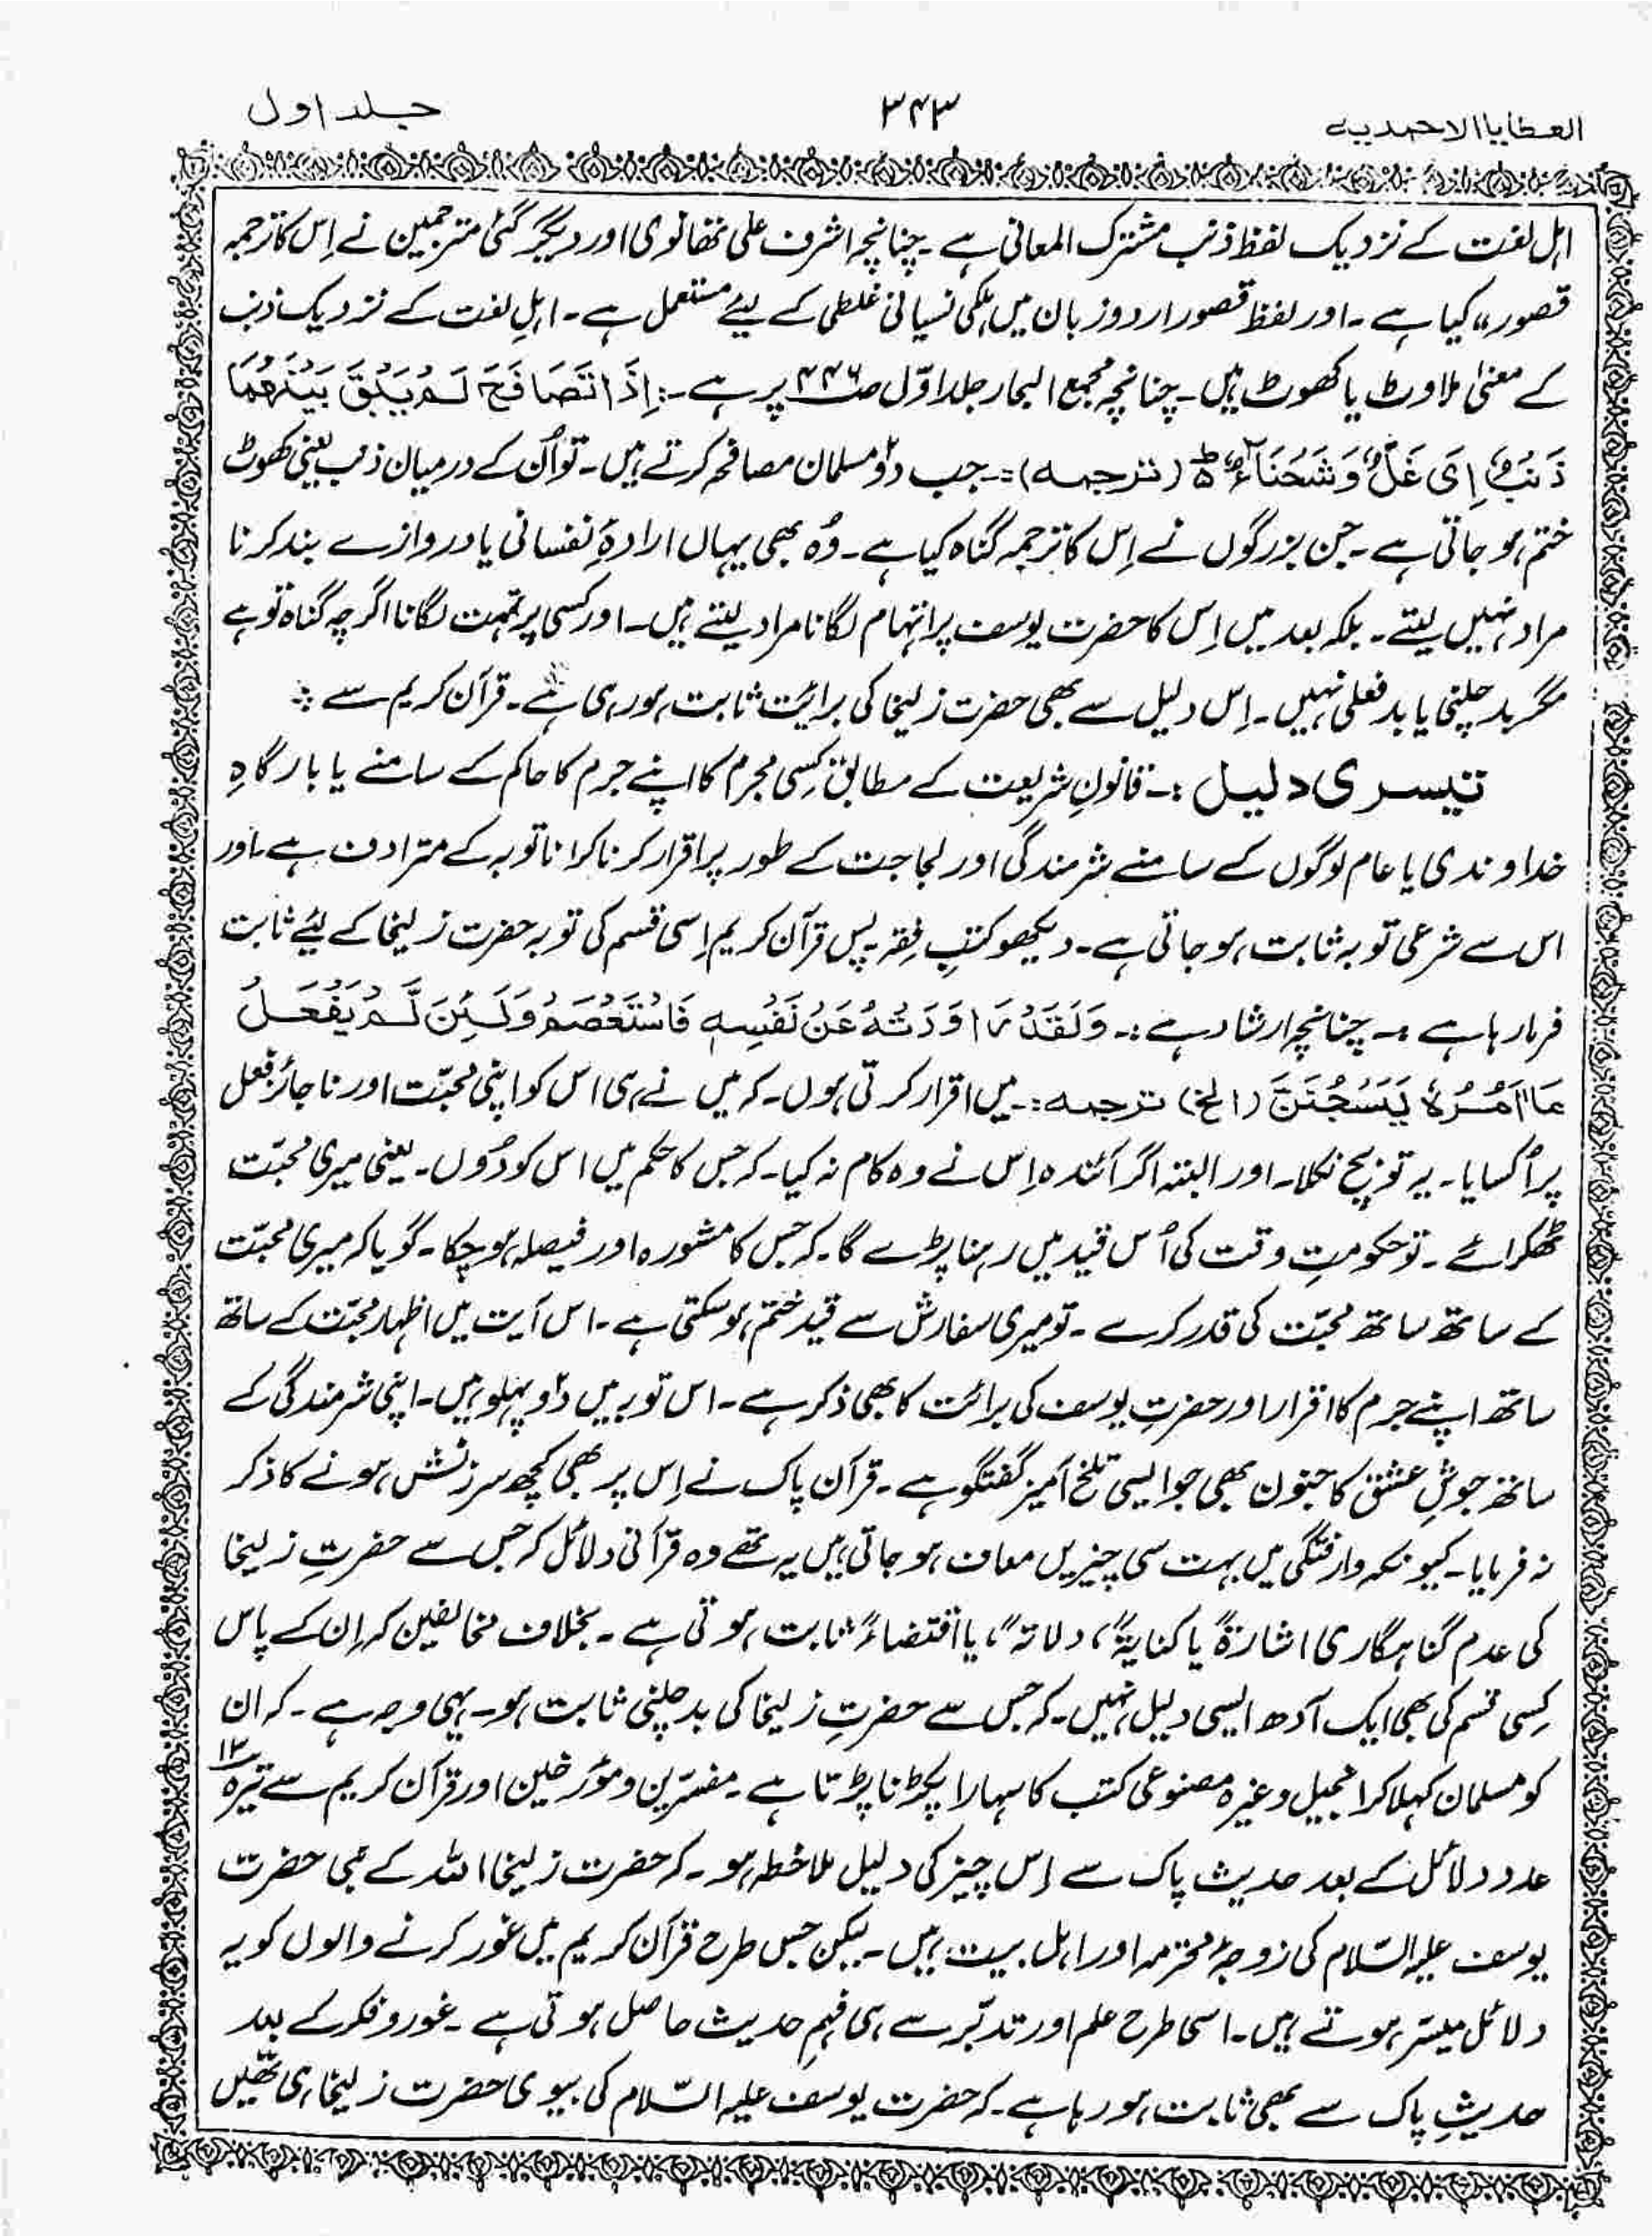 العطایا الاحمدیہ
۳۴۳
جلد اول
اہل لغت کے نزدیک لفظ ذنب مشترک المعانی ہے ۔ چنانچہ اشرف علی تھانوی اور دیگر کئی مترجمین نے اِس کا ترجمہ
قصور،، کیا ہے ۔ اور لفظ قصور اردو زبان میں ہلکی نسیانی غلطی کے لیئے مستعمل ہے ۔ اہلِ لغت کے نزدیک ذنب
کے معنیٰ ملاوٹ یا کھوٹ ہیں ۔ چنانچہ مجمع البحار جلد اوّل صـ۴۴۶ پر ہے :۔ اِذَا تَصَافَحَ لَمْ يَبْقَ بَيْنَهُمَا
ذَنْبٌ اِى غَلٌّ وَشَحْنَاءٌ ط (ترجمہ) :۔ جب دو مسلمان مصافحہ کرتے ہیں ۔ تو اُن کے درمیان ذنب یعنی کھوٹ
ختم ہو جاتی ہے ۔ جن بزرگوں نے اِس کا ترجمہ گناہ کیا ہے ۔ وُہ بھی یہاں ارادۂِ نفسانی یا دروازے بند کرنا
مراد نہیں لیتے ۔ بلکہ بعد میں اِس کا حضرت یوسف پر اتہام لگانا مراد لیتے ہیں ۔ اور کسی پر تہمت لگانا اگرچہ گناہ تو ہے
مگر بد چلنی یا بد فعلی نہیں ۔ اِس دلیل سے بھی حضرت زلیخا کی برائت ثابت ہو رہی ہے ۔ قرآن کریم سے ؞
تیسری دلیل :۔ قانونِ شریعت کے مطابق کِسی مجرم کا اپنے جرم کا حاکم کے سامنے یا بارگاہِ
خداوندی یا عام لوگوں کے سامنے شرمندگی اور لجاجت کے طور پر اقرار کرنا کرانا توبہ کے مترادف ہے ۔ اور
اس سے شرعی توبہ ثابت ہو جاتی ہے ۔ دیکھو کتبِ فِقہ ۔ پس قرآن کریم اِسی قسم کی توبہ حضرت زلیخا کے لیئے ثابت
فرما رہا ہے :۔ چنانچہ ارشاد ہے :۔ وَلَقَدْ رَاوَدَتُّهُ عَنْ نَفْسِهٖ فَاسْتَعْصَمَ وَلَئِنْ لَّمْ يَفْعَلْ
مَا اٰمُرُهٗ لَيَسْجُنَنَّ (الخ) ترجمہ :۔ میں اقرار کرتی ہوں ۔ کہ میں نے ہی اس کو اپنی محبّت اور ناجائز فعل
پر اُکسایا ۔ یہ تو بچ نکلا ۔ اور البتہ اگر آئندہ اِس نے وہ کام نہ کیا ۔ کہ جس کا حکم میں اس کو دُوں ۔ یعنی میری محبّت
ٹھکرائے ۔ تو حکومتِ وقت کی اُس قید میں رہنا پڑے گا ۔ کہ جس کا مشورہ اور فیصلہ ہو چکا ۔ گویا کہ میری محبّت
کے ساتھ ساتھ محبّت کی قدر کرے ۔ تو میری سفارش سے قید ختم ہو سکتی ہے ۔ اس آیت میں اظہار محبّت کے ساتھ
ساتھ اپنے جرم کا اقرار اور حضرتِ یوسف کی برائت کا بھی ذکر ہے ۔ اس توبہ میں دو پہلو ہیں ۔ اپنی شرمندگی کے
ساتھ جوشِ عشق کا جنون بھی جو ایسی تلخ آمیز گفتگو ہے ۔ قرآن پاک نے اِس پر بھی کچھ سرزنش ہونے کا ذکر
نہ فرمایا ۔ کیونکہ وارفتگی میں بہت سی چیزیں معاف ہو جاتی ہیں یہ تھے وہ قرآنی دلائل کہ جس سے حضرتِ زلیخا
کی عدم گناہگاری اشارۃً یا کنایۃً ، دلالۃً ، یا اقتضاءً ثابت ہوتی ہے ۔ بخلاف مخالفین کہ اِن کے پاس
کِسی قسم کی بھی ایک آدھ ایسی دلیل نہیں ۔ کہ جس سے حضرتِ زلیخا کی بد چلنی ثابت ہو ۔ یہی وجہ ہے ۔ کہ ان
کو مسلمان کہلا کر انجیل وغیرہ مصنوعی کتب کا سہارا پکڑنا پڑتا ہے ۔ مفسّرین و مؤرخین اور قرآن کریم سے تیرہ ۱۳
عدد دلائل کے بعد حدیث پاک سے اِس چیز کی دلیل ملاخطہ ہو ۔ کہ حضرت زلیخا اللہ کے نبی حضرت
یوسف علیہ السّلام کی زوجۂ محترمہ اور اہل بیت ہیں ۔ لیکن جس طرح قرآن کریم میں غور کرنے والوں کو یہ
دلائل میسّر ہوتے ہیں ۔ اسی طرح علم اور تدبّر سے ہی فہمِ حدیث حاصل ہوتی ہے ۔ غور و فکر کے بعد
حدیثِ پاک سے بھی ثابت ہو رہا ہے ۔ کہ حضرت یوسف علیہ السّلام کی بیوی حضرت زلیخا ہی تھیں